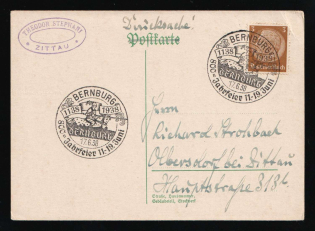 THEODOR STEPHANI
ZITTAU
"Drucksache"
Postkarte
BERNBURG
1138 1938
BERNBURG
17.6.38
800-Jahrfeier 11.-19. Juni
BERNBURG
1138 1938
BERNBURG
17.6.38
800-Jahrfeier 11.-19. Juni
Herrn
Richard Strohbach
Olbersdorf bei Zittau
Hauptstraße 318b